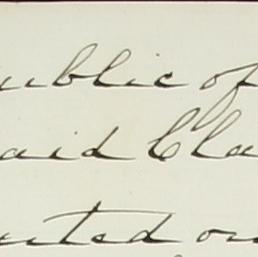 ublic of
aid Cla
uted on